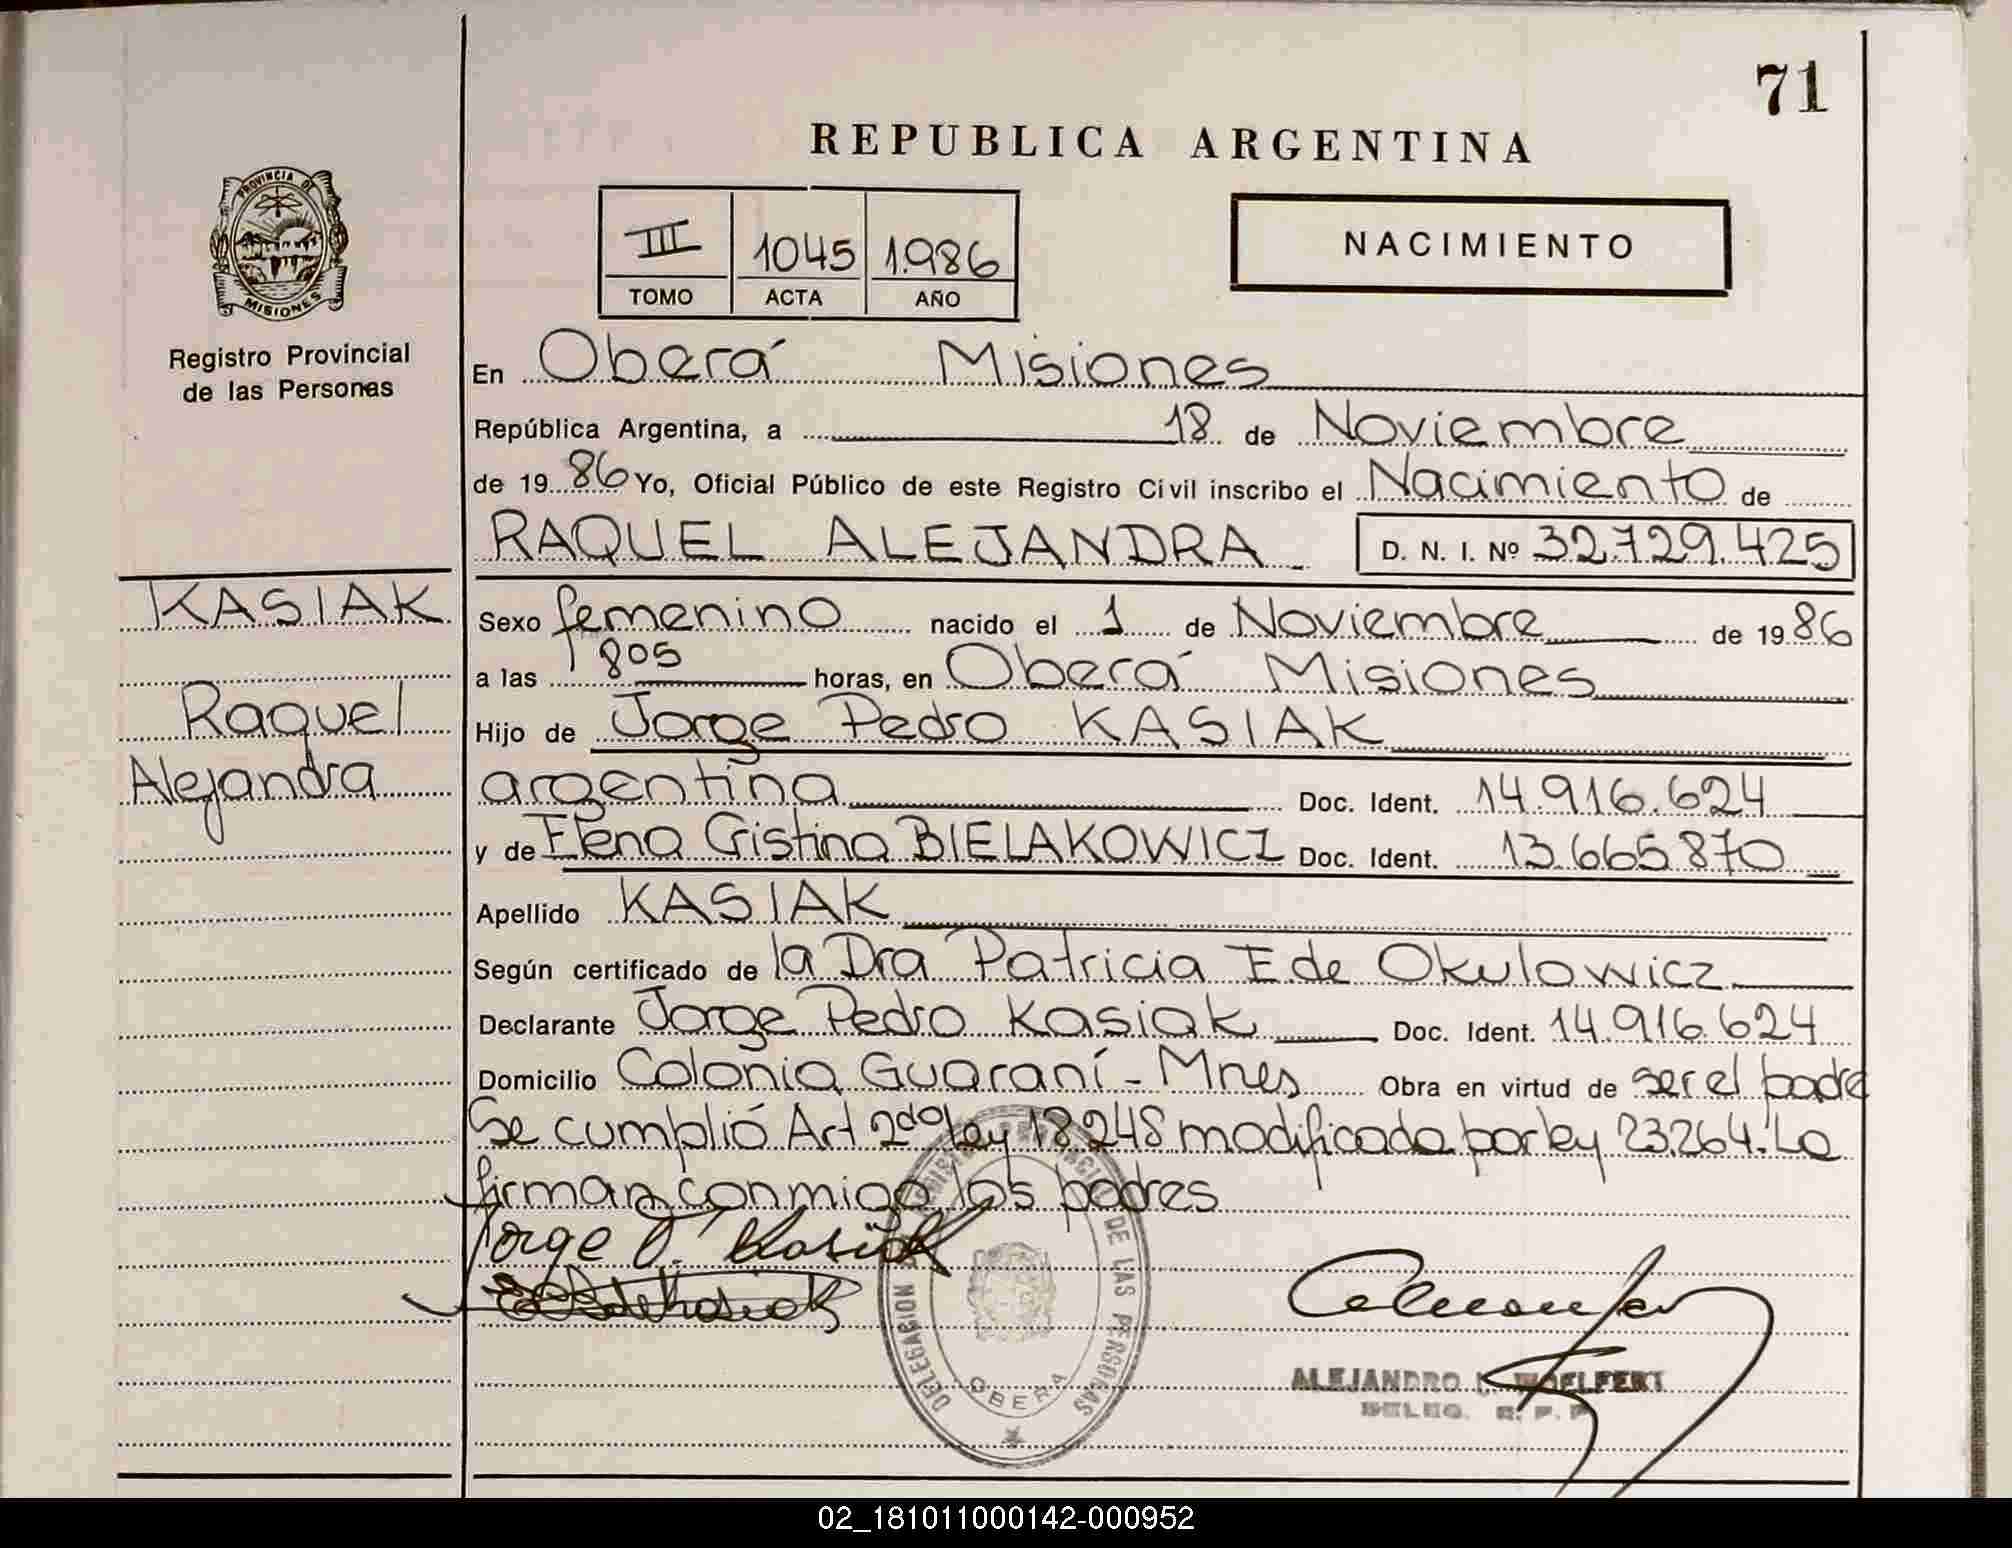 71
REPUBLICA ARGENTINA
PROVINCIA DE
MISIONES
Registro Provincial
de las Personas
III 1045 1.986
TOMO ACTA AÑO
NACIMIENTO
En Oberá Misiones
República Argentina, a 18 de Noviembre
de 1986 Yo, Oficial Público de este Registro Civil inscribo el Nacimiento de
RAQUEL ALEJANDRA D. N. I. Nº 32.729.425
KASIAK
Raquel
Alejandra
Sexo femenino nacido el 1 de Noviembre de 1986
a las 805 horas, en Oberá Misiones
Hijo de Jorge Pedro KASIAK
argentina Doc. Ident. 14.916.624
y de Elena Cristina BIELAKOWICZ Doc. Ident. 13.665.870
Apellido KASIAK
Según certificado de la Dra Patricia E de Okulowicz
Declarante Jorge Pedro Kasiak Doc. Ident. 14.916.624
Domicilio Colonia Guaraní - Mnes Obra en virtud de ser el padre
Se cumplió Art 2do ley 18.248 modificada por ley 23.264. Lo
firman conmigo los padres
Jorge P. Kasiak
DELEGACION DE LAS PERSONAS
OBERA
ALEJANDRO WOELFERT
DELEG. R. P. P.
02_181011000142-000952